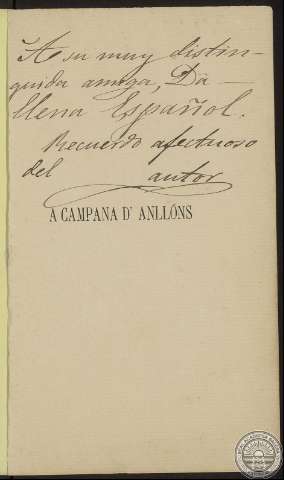 A su muy distin-
guida amiga, Dª
Elena Español.
Recuerdo afectuoso
del autor
A CAMPANA D' ANLLÓNS